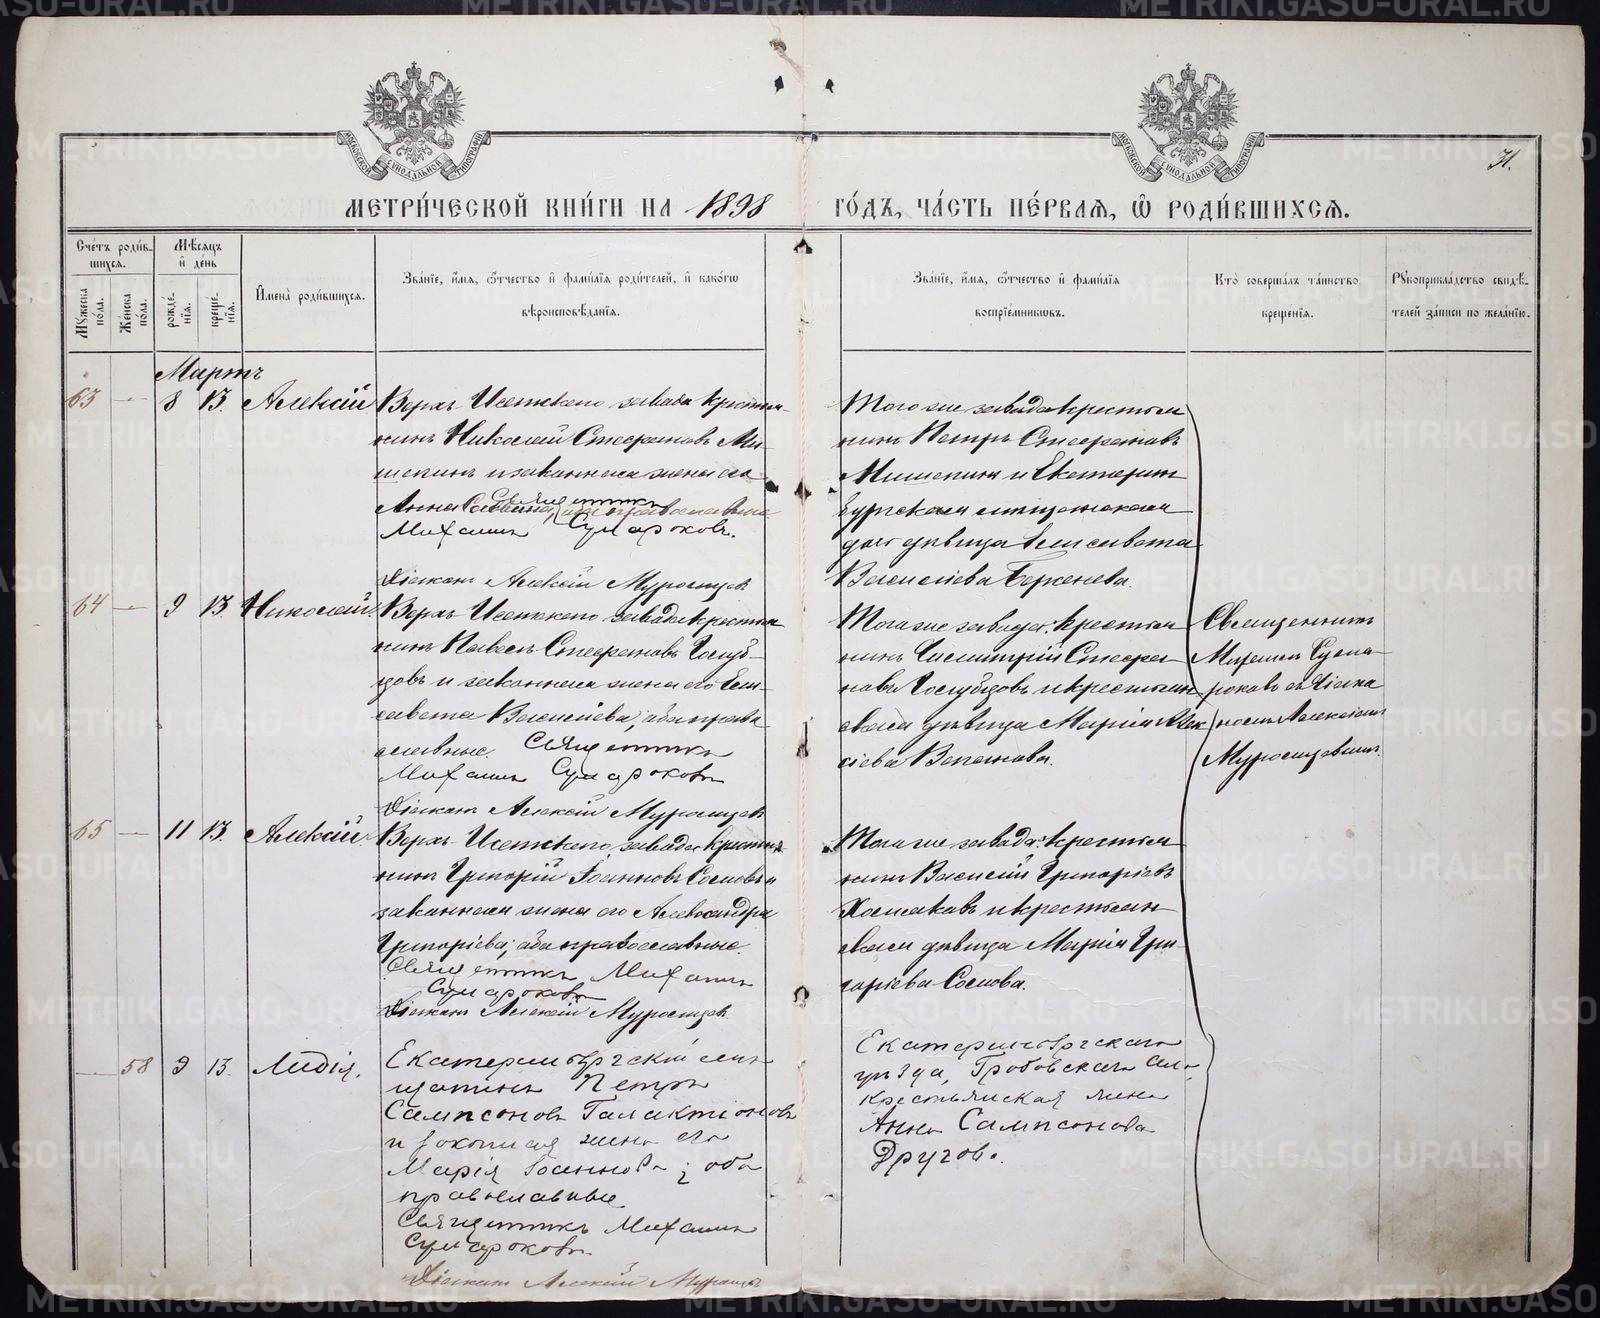 31.
МЕТРИ́ЧЕСКОЙ КНИ́ГИ НА 1898
ГО́ДЪ, ЧА́СТЬ ПЕ́РВАЯ, Ѡ РОДИ́ВШИХСЯ.
Сче́тъ роди́в-
шихся.
Мꙋ́жеска по́ла.
Же́нска по́ла.
Мѣ́сяцъ и де́нь
рожде́-
нія.
креще́-
нія.
Имена̀ роди́вшихся.
Зва́ніе, и́мя, ѻ́тчество и фами́лія роди́телей, и како́гѡ
вѣроисповѣ́данія.
Зва́ніе, и́мя, ѻ́тчество и фами́лія
воспріе́мникѡвъ.
Кто̀ соверша́лъ та́инство
креще́нія.
Рꙋкоприкла́дство свидѣ́-
телей за́писи по жела́нію.
Мартъ
63 — 8 13. Алексій
Верхъ Исетскаго завода крестья-
нинъ Николай Стефановъ Ми-
шенинъ и законная жена его
Анна
Священникъ
Михаилъ Сумароковъ.
Діаконъ Алексій Муромцевъ
Того же завода крестья
нинъ Петръ Стефановъ
Мишенинъ и Екатерин
бургская мѣщанская
дочь дѣвица Елисавета
Василіева
64 — 9 13. Николай.
Верхъ Исетскаго завода крестья
нинъ Павелъ Стефановъ Голуб-
цовъ и законная жена его Ели-
савета Василіева, оба право
славные. Священникъ
Михаилъ Сумароковъ
Діаконъ Алексій Муромцевъ
Того же завода крестья
нинъ Димитрій Стефа
новъ Голубцовъ и крестьян
ская дѣвица Марія Алек
сіева
Священникъ
Михаилъ Сума-
роковъ съ діако
номъ Алексіемъ
Муромцевымъ.
65 — 11 13. Алексій.
Верхъ Исетскаго завода крестья
нинъ Григорій Іоанновъ Сосновъ и
законная жена его Александра
Григоріева, оба православные.
Священникъ Михаилъ
Сумароковъ
Діаконъ Алексій Муромцевъ
Того же завода крестья
нинъ Василій Григоріевъ
и крестьян
ская дѣвица Марія Гри-
горіева Соснова.
— 58 9 13. Лидія.
Екатеринбургскій мѣ
щанинъ Петръ
Сампсоновъ Галактіоновъ
и законная жена его
Марія Іоаннова; оба
православные
Священникъ Михаилъ
Сумароковъ
Діаконъ Алексій Муромцевъ
Екатеринбургскаго
уѣзда, Гробовской
крестьянская жена
Анна Сампсонова
Другова.
METRIKI.GASO-URAL.RU